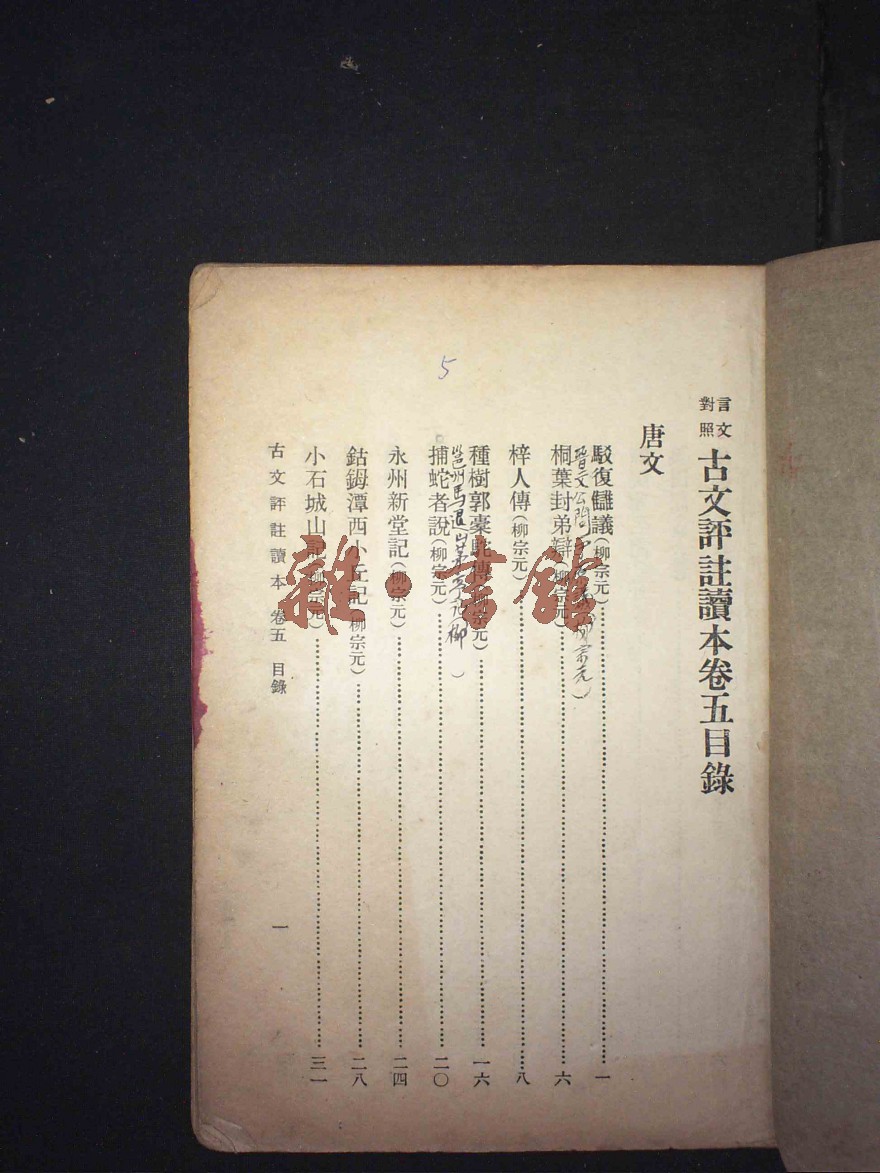 言文對照 古文評註讀本卷五目錄
唐文
駁復讎議(柳宗元)一
晉文公問守原議(柳宗元)
桐葉封弟辯(柳宗元)六
梓人傳(柳宗元)八
種樹郭橐駝傳(柳宗元)一六
邕州馬退山茅亭記(柳)
捕蛇者說(柳宗元)二〇
永州新堂記(柳宗元)二四
鈷鉧潭西小丘記(柳宗元)二八
小石城山記(柳宗元)三一
古文評註讀本 卷五 目錄 一
5
雜·書館